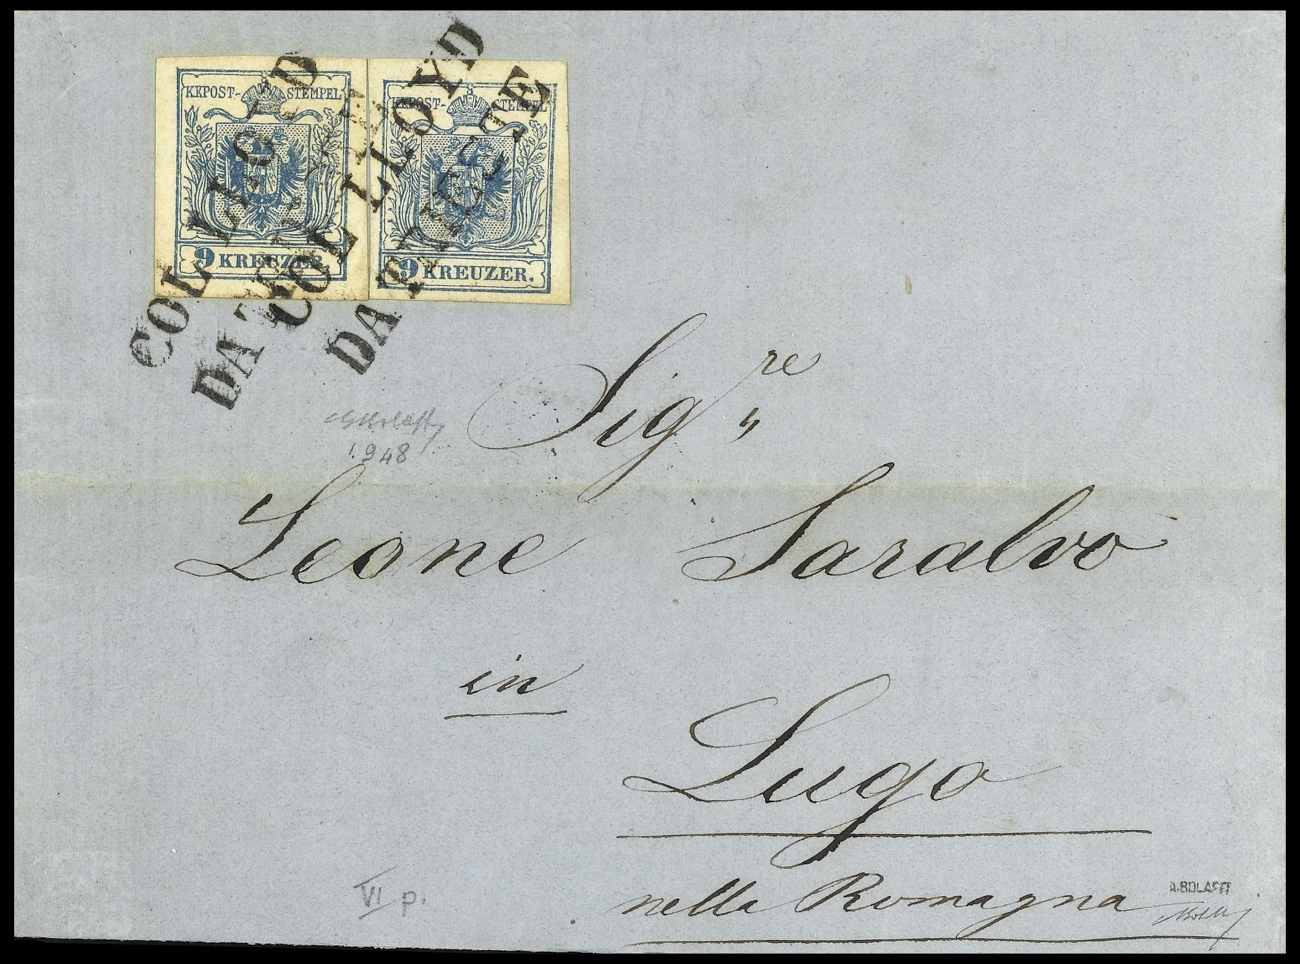 KKPOST-STEMPEL
9 KREUZER.
KKPOST-STEMPEL
9 KREUZER.
COL LLOYD
DA TRIESTE
COL LLOYD
DA TRIESTE
Sig.re
1948
Leone Saralvo
in
Lugo
nella Romagna
VI p.
A. BOLAFFI